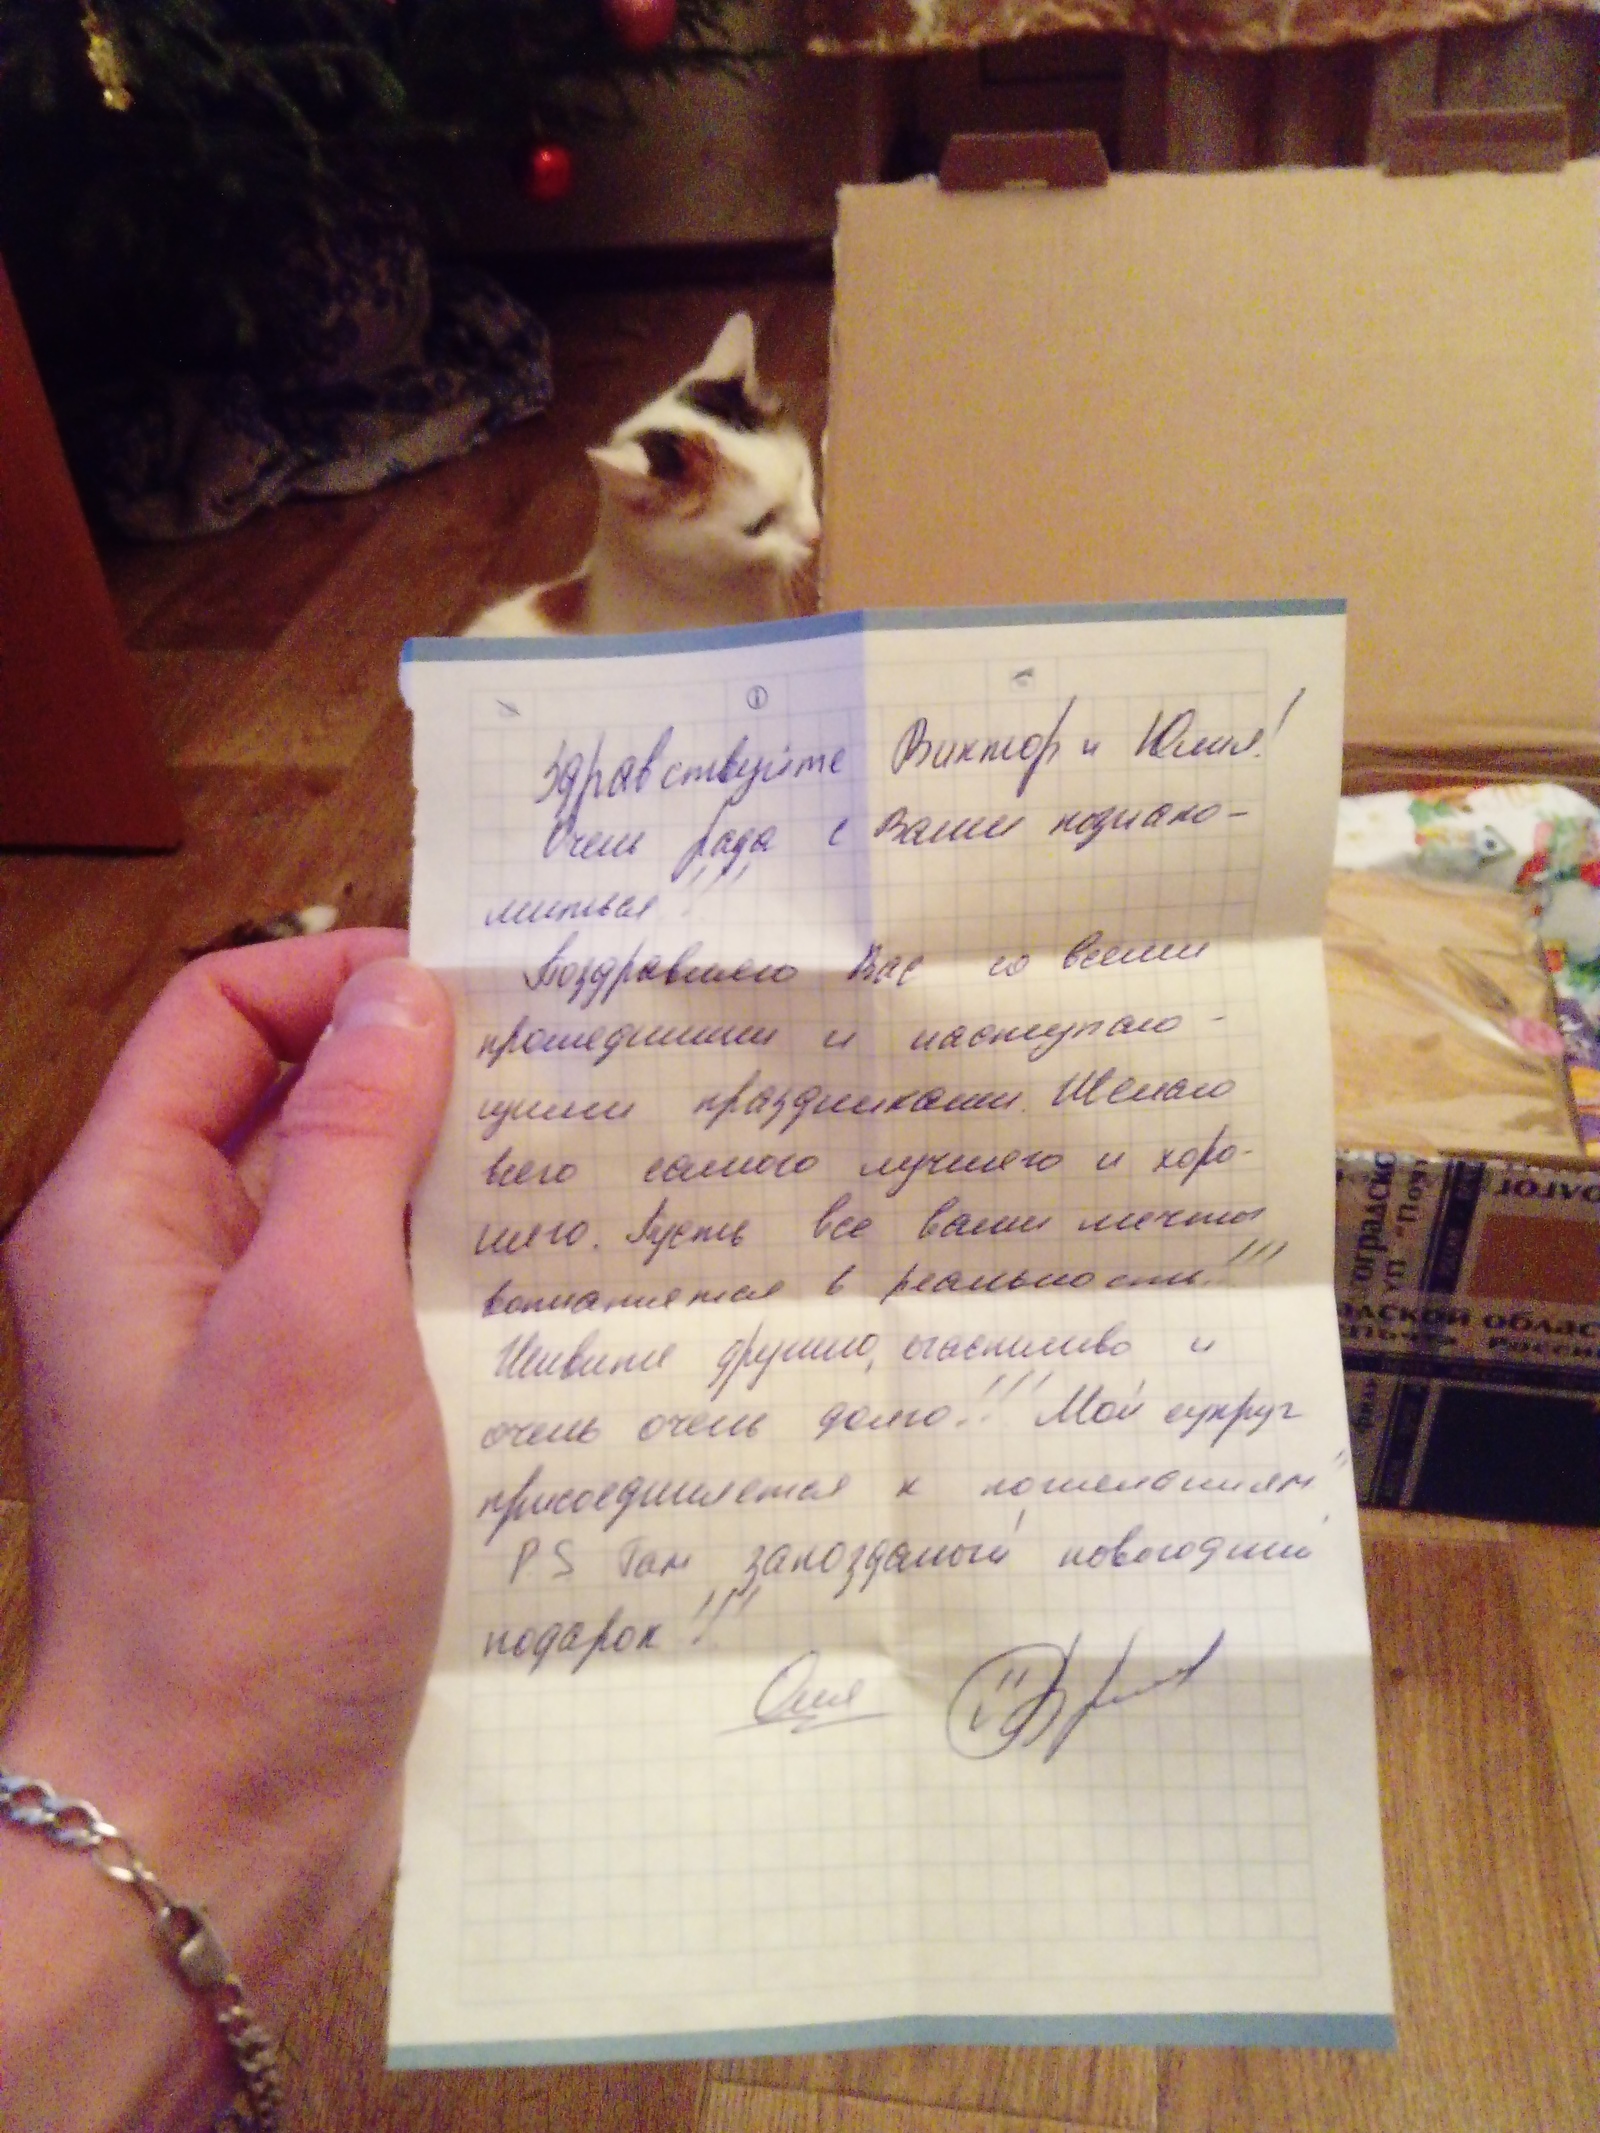 Здравствуйте Виктор и Юлия!
Очень рада с Вами познако-
миться!!!
Поздравляю Вас со всеми
прошедшими и наступаю-
щими праздниками. Желаю
всего самого лучшего и хоро-
шего. Пусть все ваши мечты
в реальность!!!
Живите дружно, счастливо и
очень очень долго!!! Мой супруг
присоединяется к пожеланиям
PS Там запозданый новогодний
подарок!!!
Оля